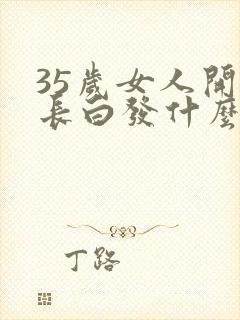 35歲女人開
長白發什麼
丁路